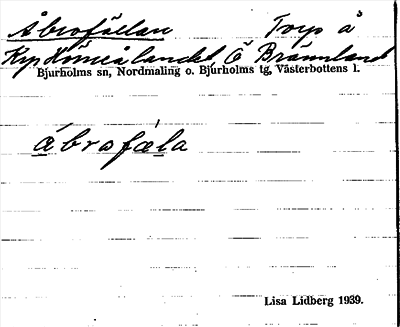 Åbrofällan Torp å
Krp Kömeålandet, Ö Brännland
Bjurholms sn, Nordmaling o. Bjurholms tg, Västerbottens l.
åbrofæla
Lisa Lidberg 1939.